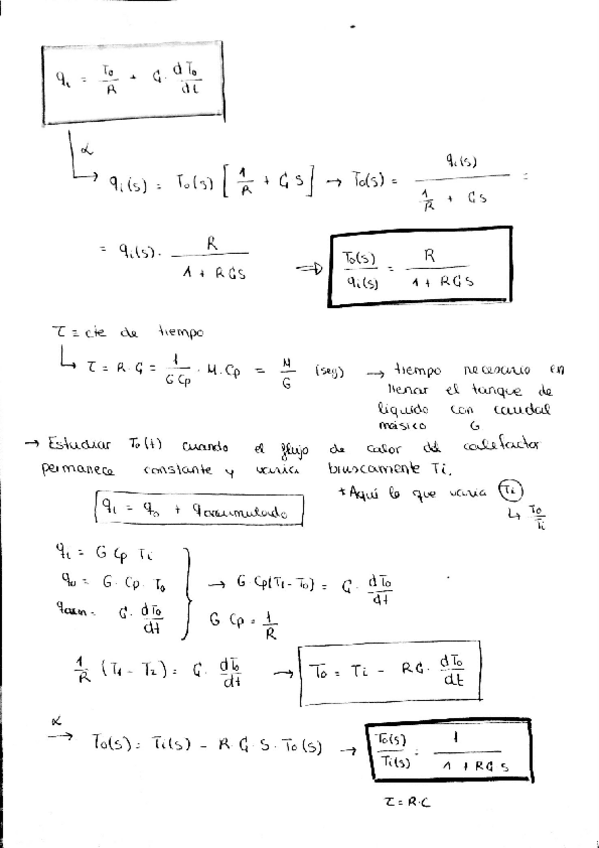 qi = To/R + C · dTo/dt
α
qi(s) = To(s) [ 1/R + C S ] → To(s) = qi(s) / (1/R + CS) =
= qi(s) · R / (1 + RCS) ⇒ To(s)/qi(s) = R / (1 + RCS)
τ = cte de tiempo
τ = R·C = 1/(G Cp) · M · Cp = M/G (seg) → tiempo necesario en
llenar el tanque de
liquido con caudal
másico G
→ Estudiar To(t) cuando el flujo de calor del calefactor
permanece constante y varia bruscamente Ti.
* Aqui lo que varia Ti
↳ To/Ti
qi = qo + qacumulado
qi = G Cp Ti
qo = G · Cp · To
qacum = C · dTo/dt
→ G Cp(Ti - To) = C · dTo/dt
G Cp = 1/R
1/R (T1 - T2) = C · dTo/dt → To = Ti - RC · dTo/dt
α
→ To(s) = Ti(s) - R C · S · To(s) → To(s)/Ti(s) = 1 / (1 + RCS)
τ = R·C